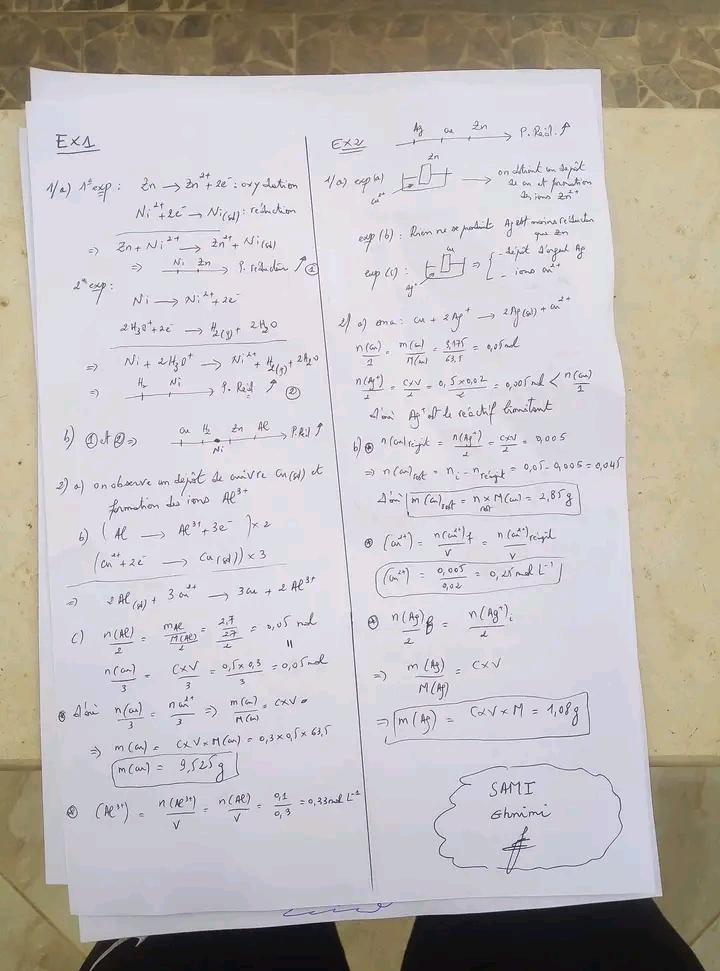 EX1
1/a) 1° exp : Zn → Zn²⁺ + 2e⁻ : oxydation
Ni²⁺ + 2e⁻ → Ni(sd) : réduction
⇒ Zn + Ni²⁺ → Zn²⁺ + Ni(sd)
⇒ Ni Zn P. réducteur ↑ ①
2° exp :
Ni → Ni²⁺ + 2e⁻
2H₃O⁺ + 2e⁻ → H₂(g) + 2H₂O
⇒ Ni + 2H₃O⁺ → Ni²⁺ + H₂(g) + 2H₂O
⇒ H₂ Ni P. Réd ↑ ②
b) ① et ② ⇒ Cu H₂ Ni Zn Al P. Réd ↑
2) a) on observe un dépôt de cuivre Cu(sd) et
formation des ions Al³⁺
b) (Al → Al³⁺ + 3e⁻) × 2
(Cu²⁺ + 2e⁻ → Cu(sd)) × 3
⇒ 2Al(sd) + 3Cu²⁺ → 3Cu + 2Al³⁺
c) n(Al)/2 = mAl/M(Al)/2 = 2,7/27/2 = 0,05 mol
=
n(Cu)/3 = C×V/3 = 0,5×0,3/3 = 0,05 mol
* d'où n(Cu)/3 = nCu²⁺/3 ⇒ m(Cu)/M(Cu) = C×V
⇒ m(Cu) = C×V×M(Cu) = 0,3×0,5×63,5
m(Cu) = 9,525 g
* (Al³⁺) = n(Al³⁺)/V = n(Al)/V = 0,1/0,3 = 0,33 mol L⁻¹
EX2 Ag Cu Zn P. Réd. ↑
1/a) exp(a) Zn Cu²⁺ → on obtient un dépôt
de Cu et formation
des ions Zn²⁺
exp (b) : Rien ne se produit Ag est moins réducteur
que Zn
exp (c) : Cu Ag⁺ ⇒ { - dépôt d'argent Ag
- ions Cu²⁺
2/ a) ema : Cu + 2Ag⁺ → 2Ag(sd) + Cu²⁺
n(Cu)/1 = m(Cu)/M(Cu) = 3,175/63,5 = 0,05 mol
n(Ag⁺)/2 = C×V/2 = 0,5×0,02/2 = 0,005 mol < n(Cu)/1
d'où Ag⁺ est le réactif limitant
b) * n(Cu) réagit = n(Ag⁺)/2 = C×V/2 = 0,005
⇒ n(Cu)rest = nᵢ - nréagit = 0,05 - 0,005 = 0,045
d'où m(Cu)rest = nrest × M(Cu) = 2,85 g
* (Cu²⁺) = n(Cu²⁺)f/V = n(Cu²⁺)réagit/V
(Cu²⁺) = 0,005/0,02 = 0,25 mol L⁻¹
* n(Ag)f/2 = n(Ag⁺)i/2
⇒ m(Ag)/M(Ag) = C×V
⇒ m(Ag) = C×V×M = 1,08 g
SAMI
Ghnimi